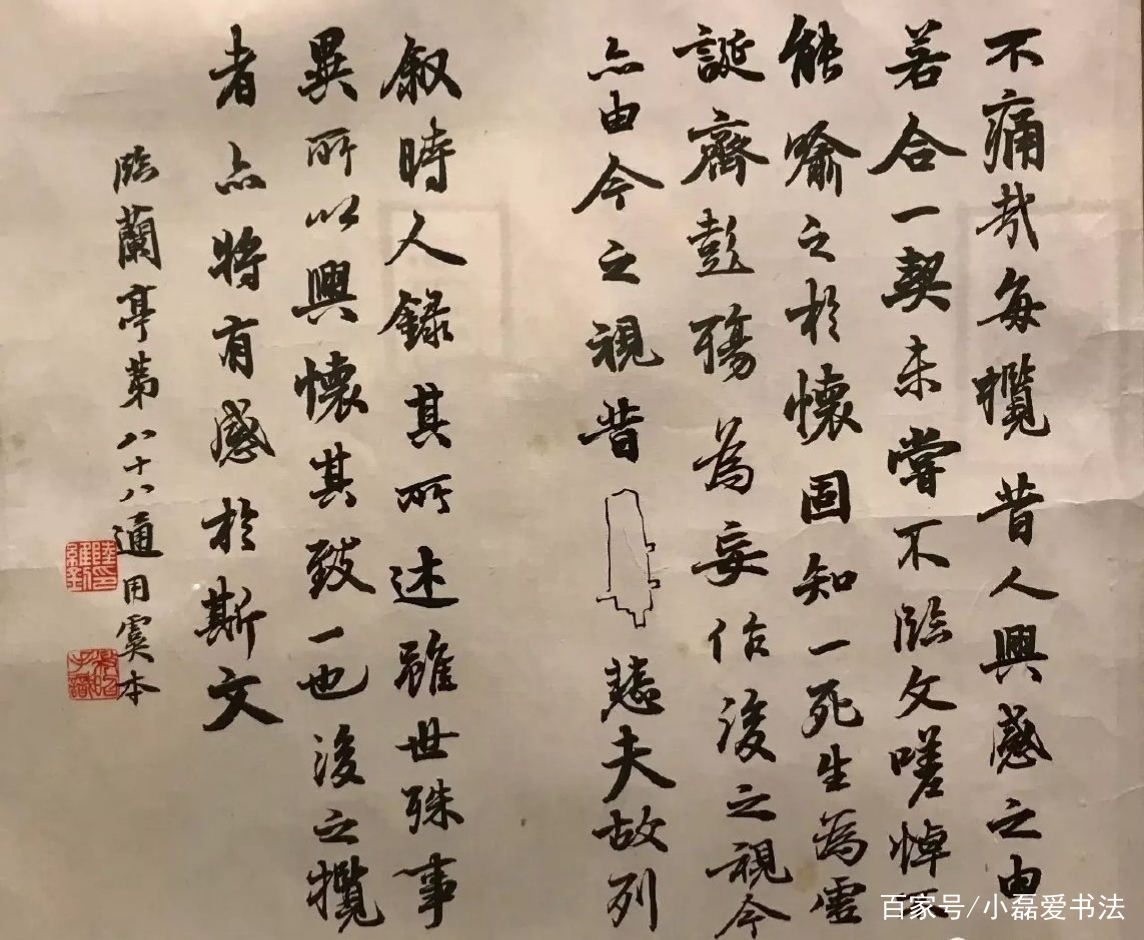 不痛哉每攬昔人興感之由
若合一契未嘗不臨文嗟悼不
能喻之於懷固知一死生為虛
誕齊彭殤為妄作後之視今
亦由今之視昔悲夫故列
叙時人錄其所述雖世殊事
異所以興懷其致一也後之攬
者亦將有感於斯文
臨蘭亭第八十八通用虞本
陸印維釗
百家号/小磊爱书法